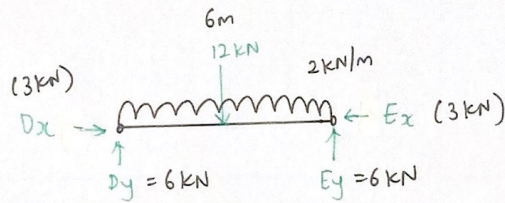 6m
12KN
2KN/m
(3KN)
Dx
Ex (3KN)
Dy = 6KN
Ey = 6KN